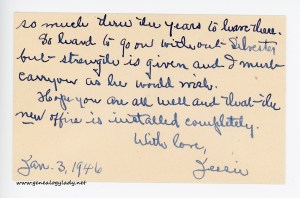 so much thru the years to leave there.
So hard to go on without Silvester
but strength is given and I must
carry on as he would wish.
Hope you are all well and that the
new office is installed completely.
With love,
Jessie
Jan. 3, 1946
www.genealogylady.net